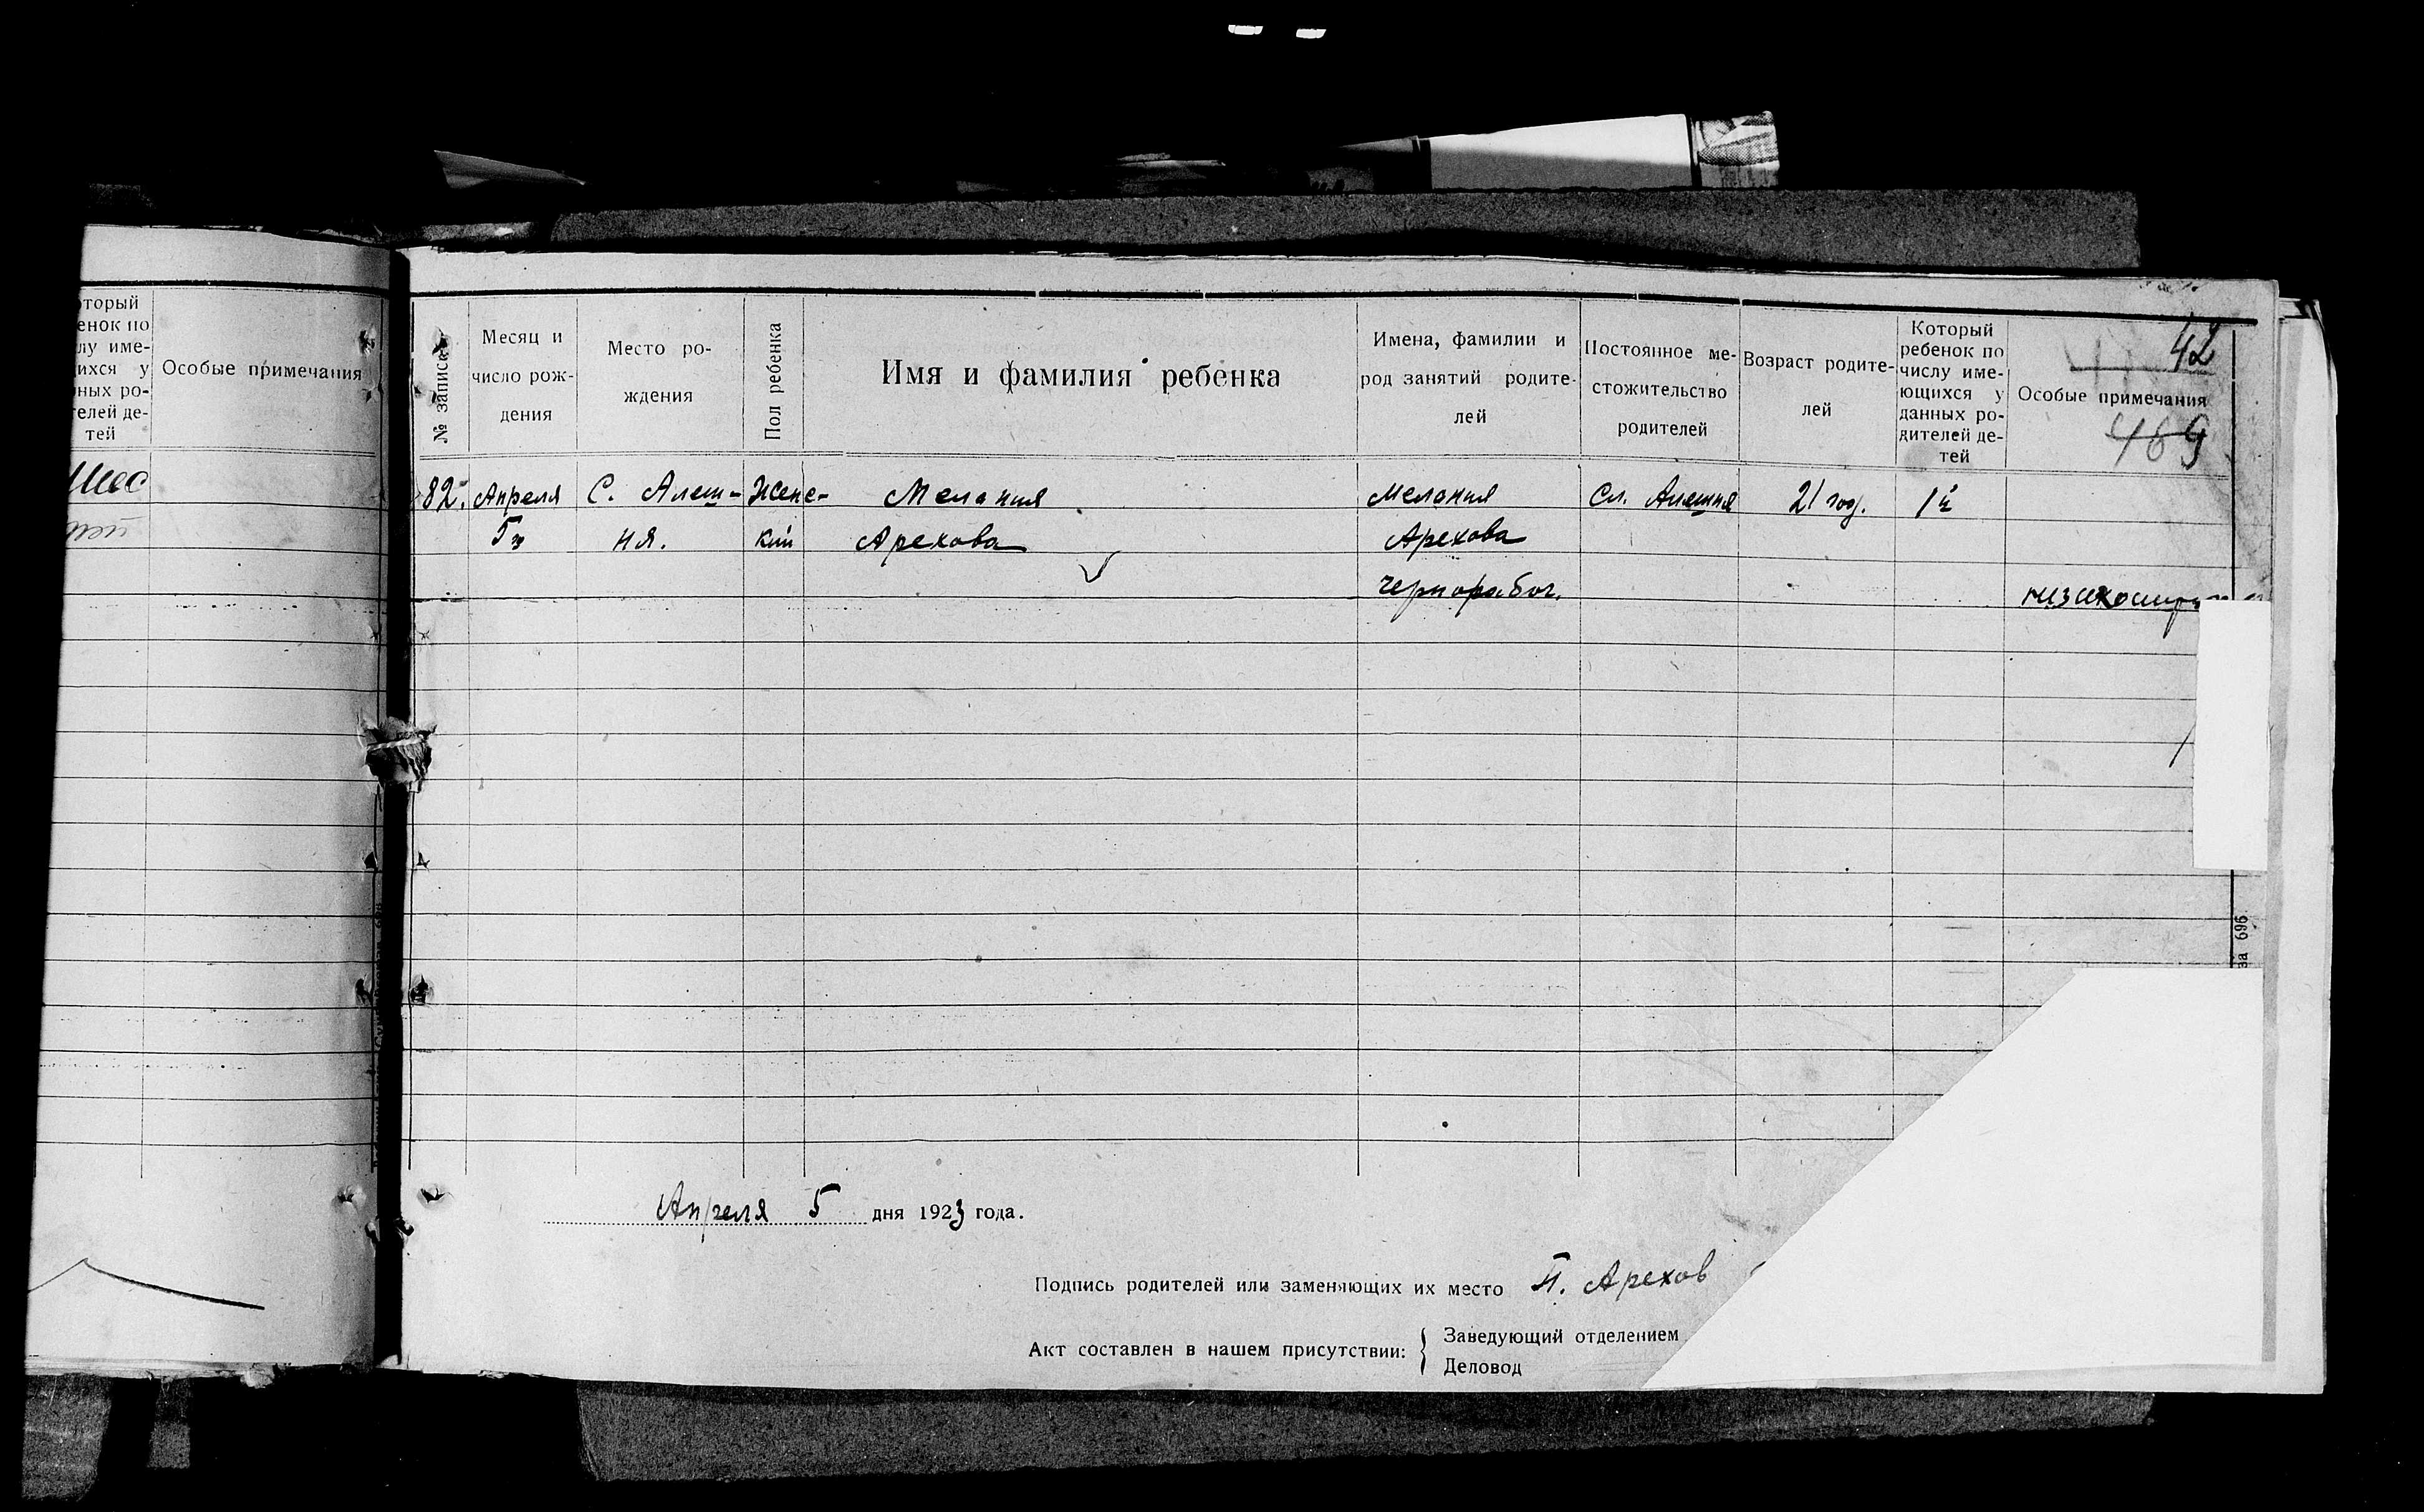 оторый
енок по
лу име-
ихся у
ных ро-
телей де-
тей
Особые примечания
№ записи
Месяц и
число рож-
дения
Место ро-
ждения
Пол ребенка
Имя и фамилия ребенка
Имена, фамилии и
род занятий родите-
лей
Постоянное ме-
стожительство
родителей
Возраст родите-
лей
Который
ребенок по
числу име-
ющихся у
данных ро-
дителей де-
тей
42
Особые примечания
469
82. Апреля С. Алеш- Женс- Мелания Мелания Сл. Алешня 21 год. 1й
5го ня. кий Арехова Арехова
чернорабоч.
за 696.
Апреля 5 дня 1923 года.
Подпись родителей или заменяющих их место П. Арехов
Акт составлен в нашем присутствии:
Заведующий отделением
Деловод